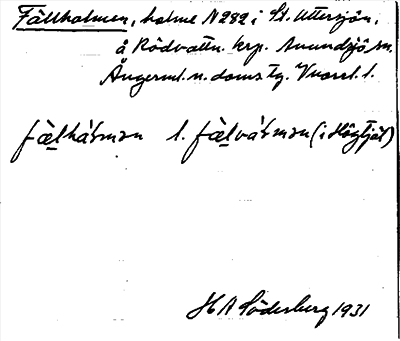 Fällholmen, holme N 282 i St. Uttersjön,
å Rödvattn. krp. Anundsjö sn.
Ångerml. n. doms tg. Vnorrl. l.
fæ̀lhȧ́rmən l. fæ̀lvȧ́rmən (i Högtjäl)
H A Söderberg 1931